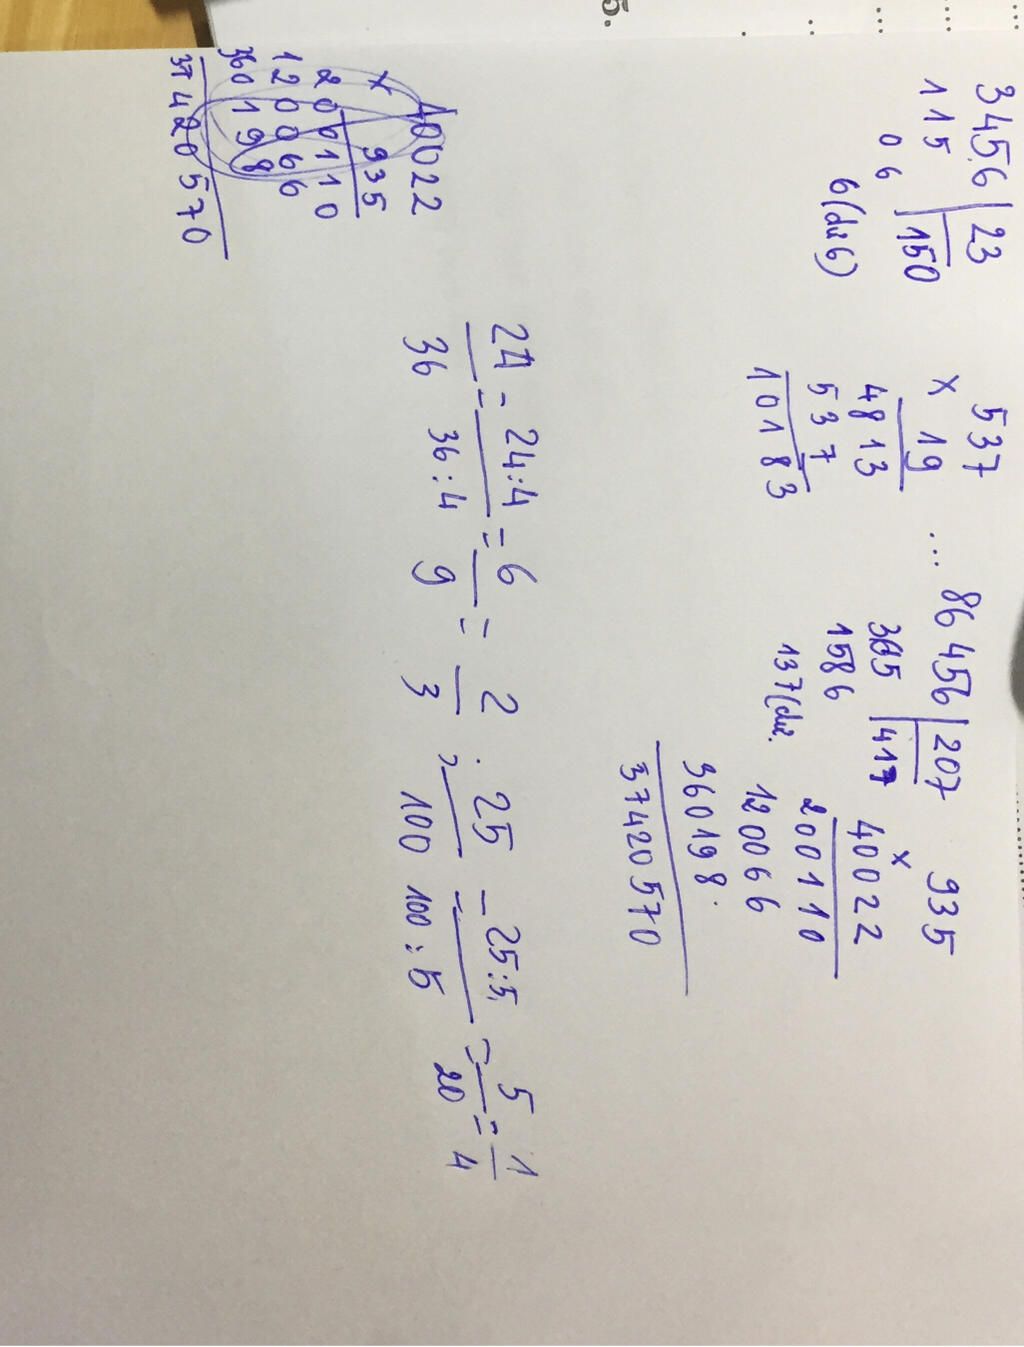 3456 | 23
115 | 150
06
6 (dư 6)
537
× 19
4813
537
10183
... 86456 | 207
365 | 417
1586
137 (dư.
935
×
40022
200110
120066
360198.
37420570
24/36 = 24:4/36:4 = 6/9 = 2/3 ; 25/100 = 25:5/100:5 = 5/20 = 1/4
40022
× 935
200110
120066
360198
37420570
5.